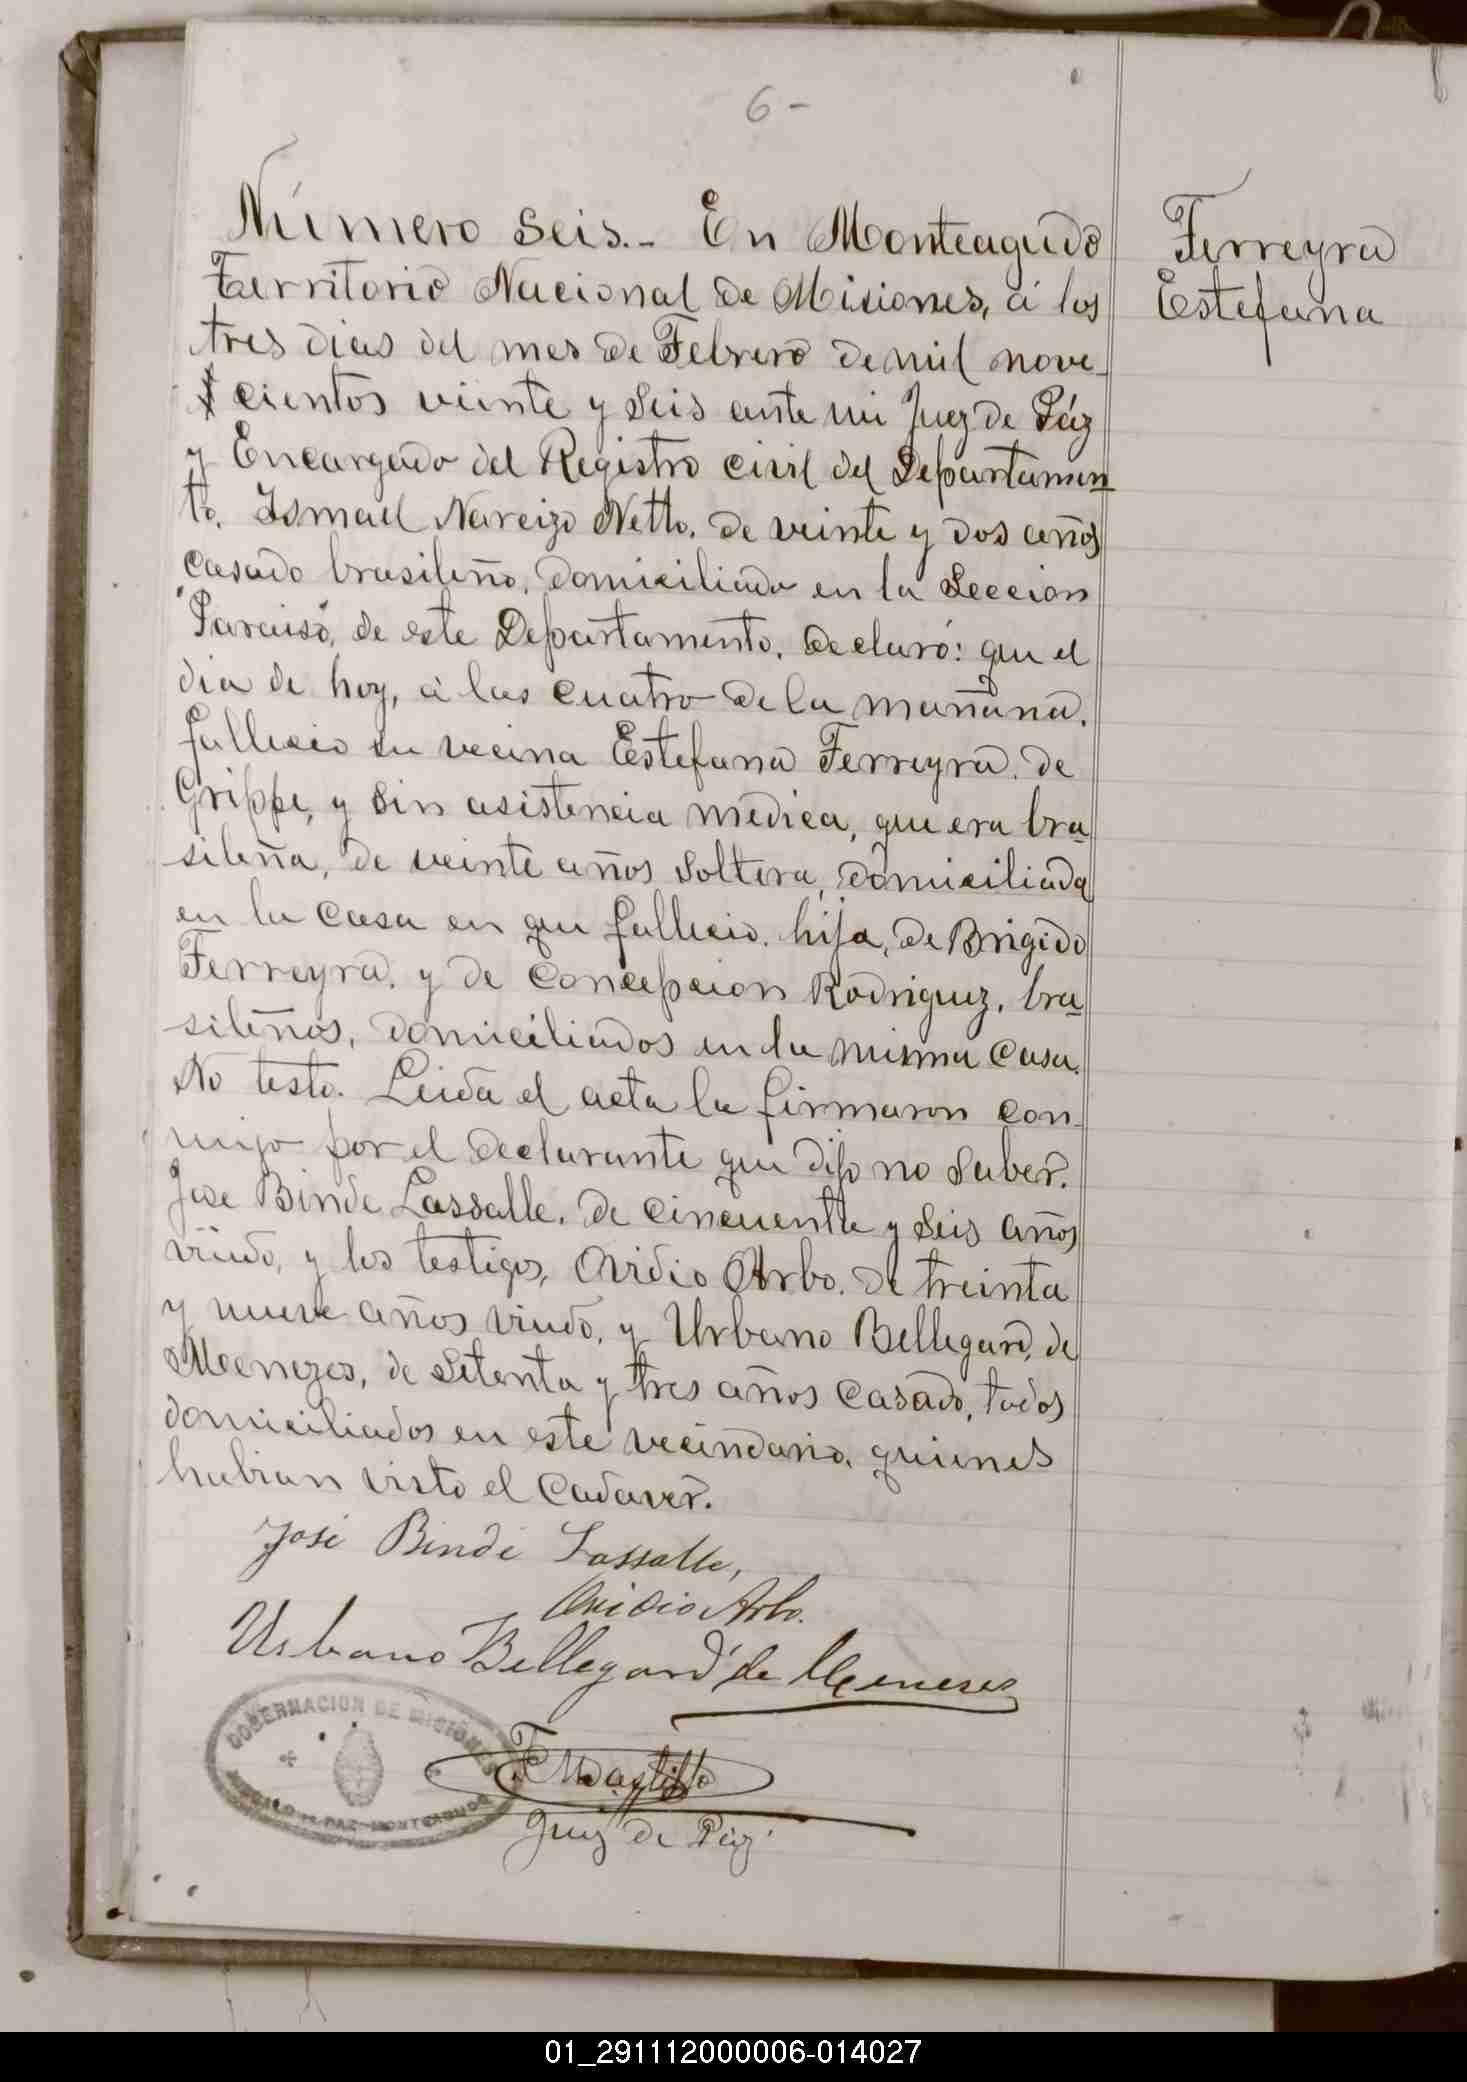 6-
Número Seis.- En Monteagudo
Territorio Nacional de Misiones, á los
tres dias del mes de Febrero de mil nove-
cientos veinte y seis ante mi Juez de Páz
y Encargado del Registro civil del Departamen
to. Ismael Narcizo Netto. de veinte y dos años
casado brasileño, domiciliado en la Seccion
"Paraiso", de este Departamento. declaró: que el
dia de hoy, á las cuatro de la mañana.
fallecio su vecina Estefana Ferreyra. de
Grippe, y sin asistencia medica, que era bra
sileña, de veinte años soltera, domiciliada
en la casa en que fallecio. hija, de Brigido
Ferreyra. y de Concepcion Rodriguez. bra
sileños, domiciliados en la misma casa.
No testo. Leida el acta la firmaron con-
migo por el declarante que dijo no saber.
Jose Binde Lassalle. de cincuenta y seis años
viudo, y los testigos, Ovidio Arbo. de treinta
y nueve años viudo. y Urbano Bellegard, de
Menezes, de setenta y tres años casado, todos
domiciliados en este vecindario. quienes
habian visto el cadaver.
Ferreyra
Estefana
José Binde Lassalle,
Ovidio Arbo.
Urbano Bellegard de Meneses
GOBERNACION DE MISIONES
JUZGADO DE PAZ-MONTEAGUDO
Juez de Páz
01_291112000006-014027